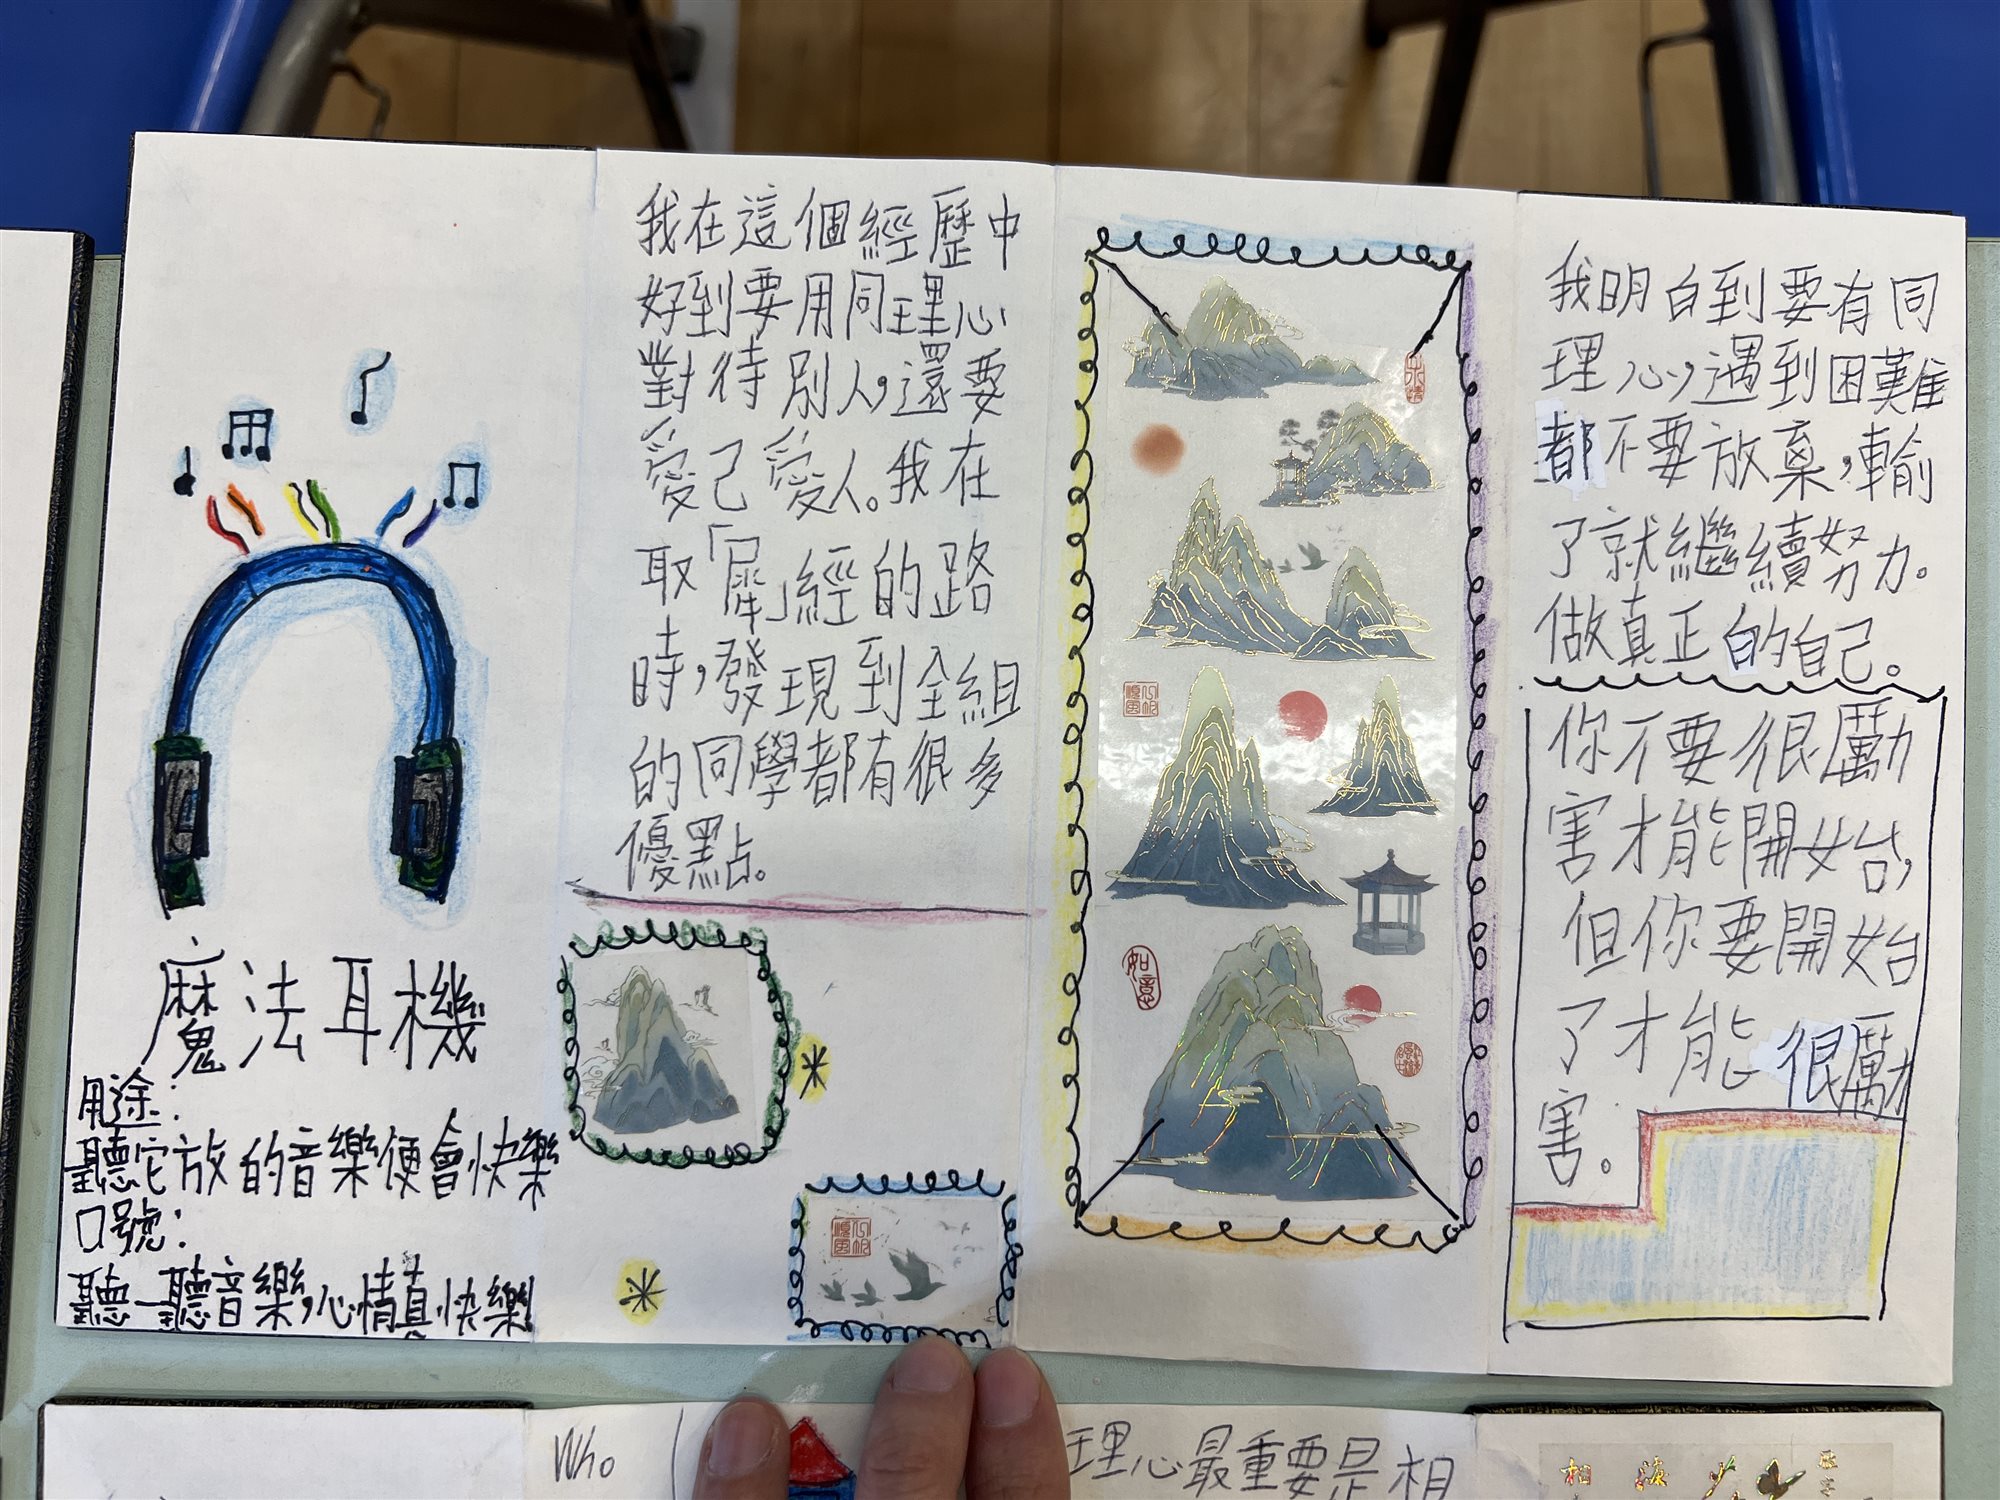 魔法耳機
用途:
聽它放的音樂便會快樂
口號:
聽一聽音樂,心情真快樂!
我在這個經歷中
好到要用同理心
對待別人,還要
愛己愛人。我在
取「犀」經的路
時,發現到全組
的同學都有很多
優點。
如意
我明白到要有同
理心,遇到困難
都不要放棄,輸
了就繼續努力。
做真正的自己。
你不要很勵
害才能開始,
但你要開始
了才能很勵
害。
Who
理心最重要是相